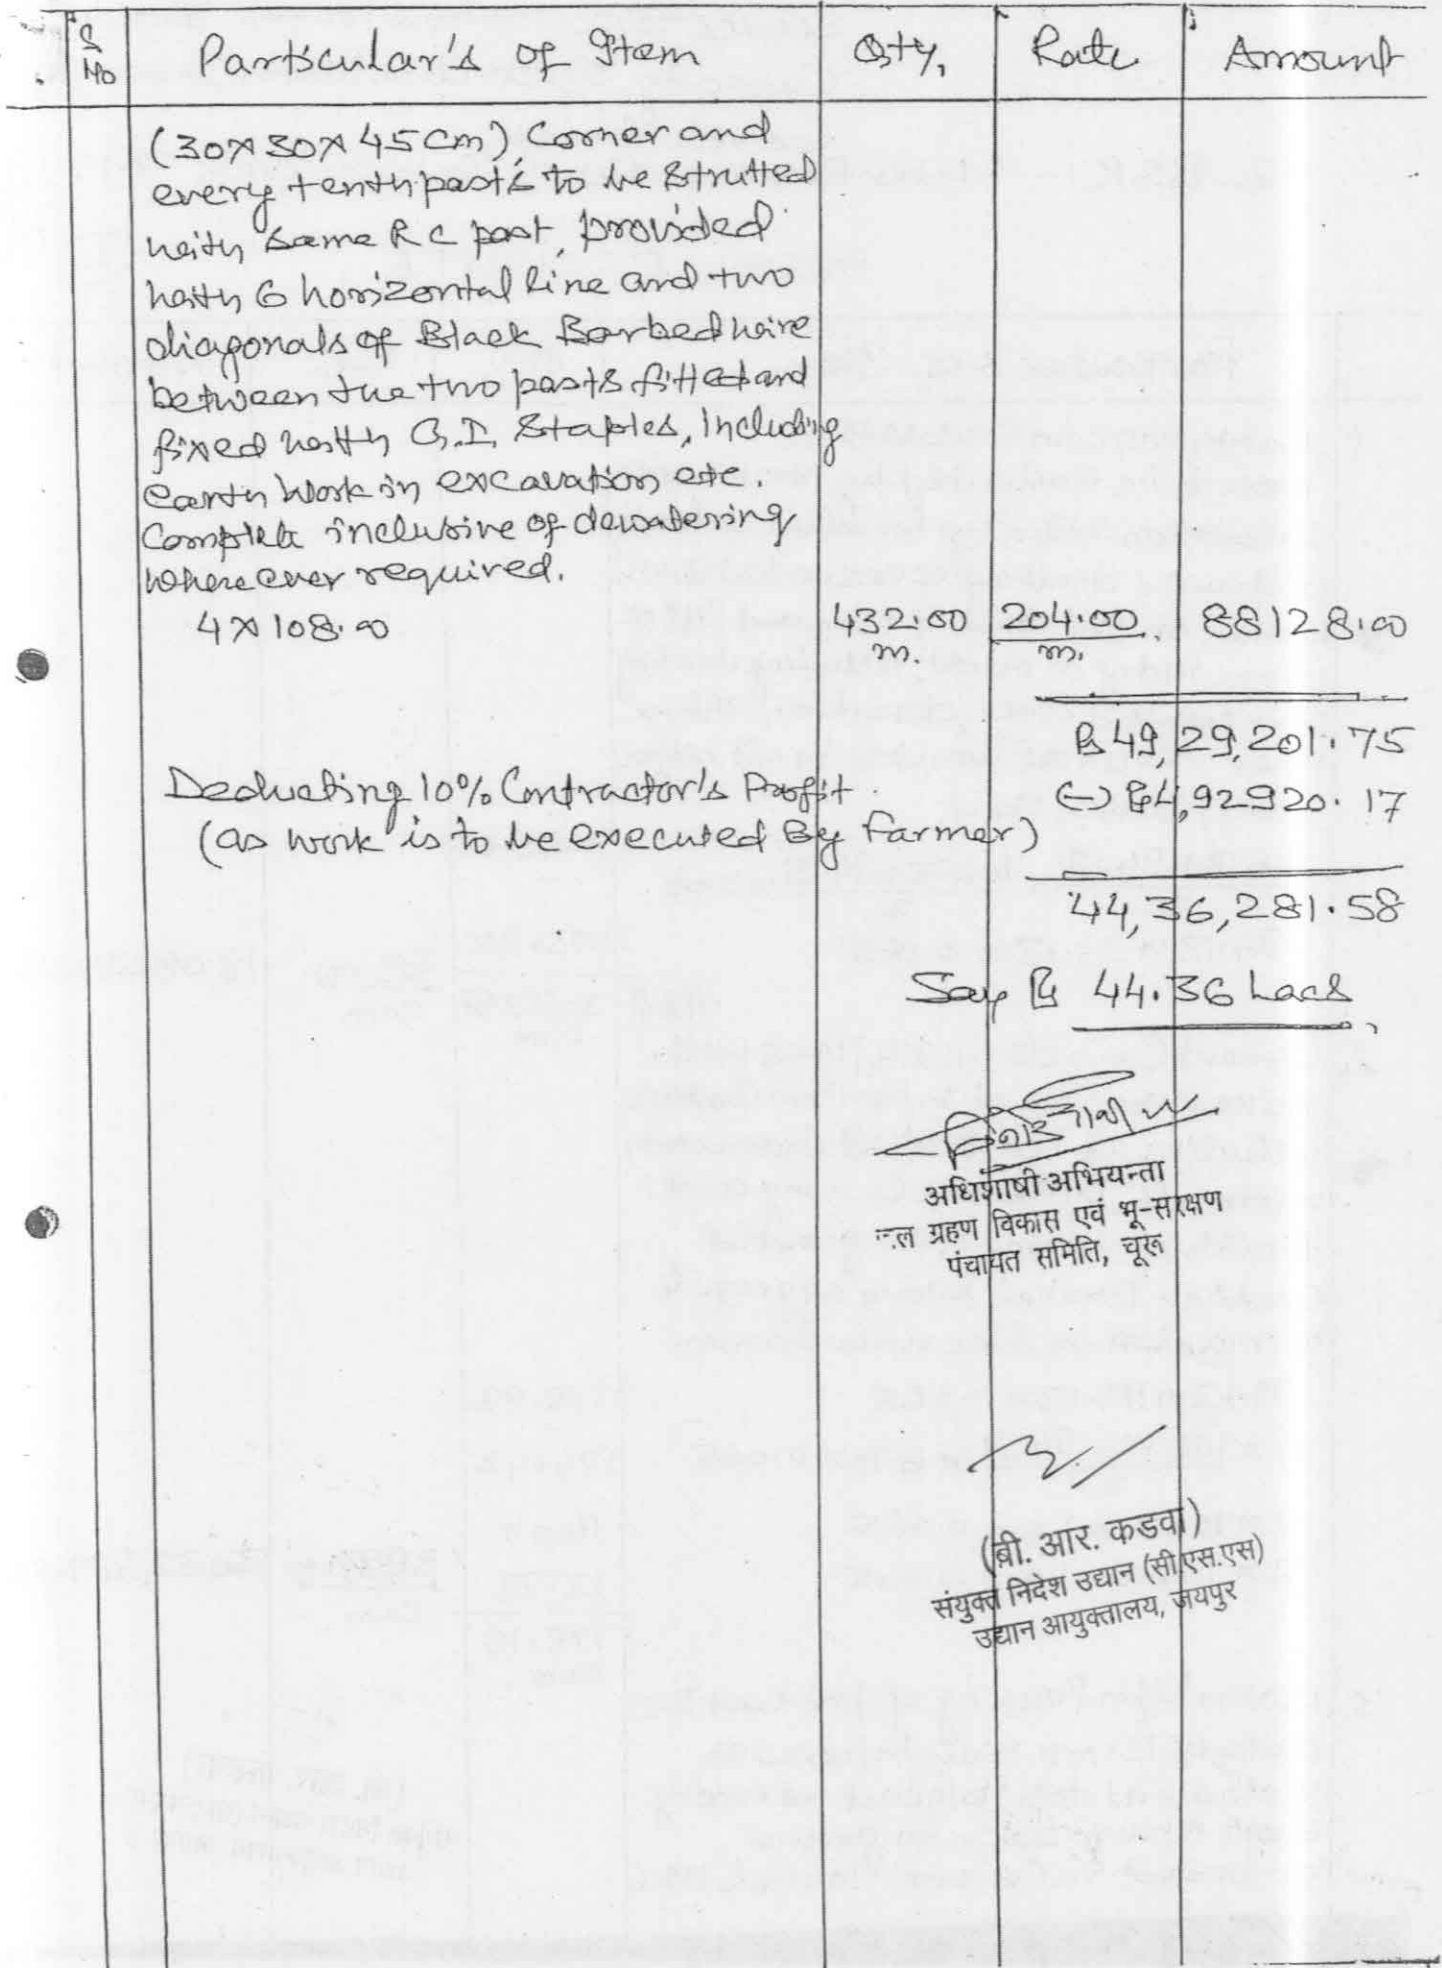 S No Particular's of Item Qty. Rate Amount
(30x30x45 Cm), Corner and
every tenth post's to be strutted
with same R C post, provided
with 6 horizontal line and two
diagonals of Black Barbed wire
between the two posts fitted and
fixed with G.I. Staples, Including
earth work in excavation etc.
Complete inclusive of dewatering
whereever required.
4 x 108.00 432.00 m. 204.00 m. 88128.00
Rs 49,29,201.75
Deducting 10% Contractor's Profit. (-) Rs 4,92920.17
(as work is to be executed By farmer)
44,36,281.58
Say Rs 44.36 Lacs
अधिशाषी अभियन्ता
ल ग्रहण विकास एवं भू-सरक्षण
पंचायत समिति, चूरू
(बी. आर. कडवा)
संयुक्त निदेश उद्यान (सी.एस.एस)
उद्यान आयुक्तालय, जयपुर